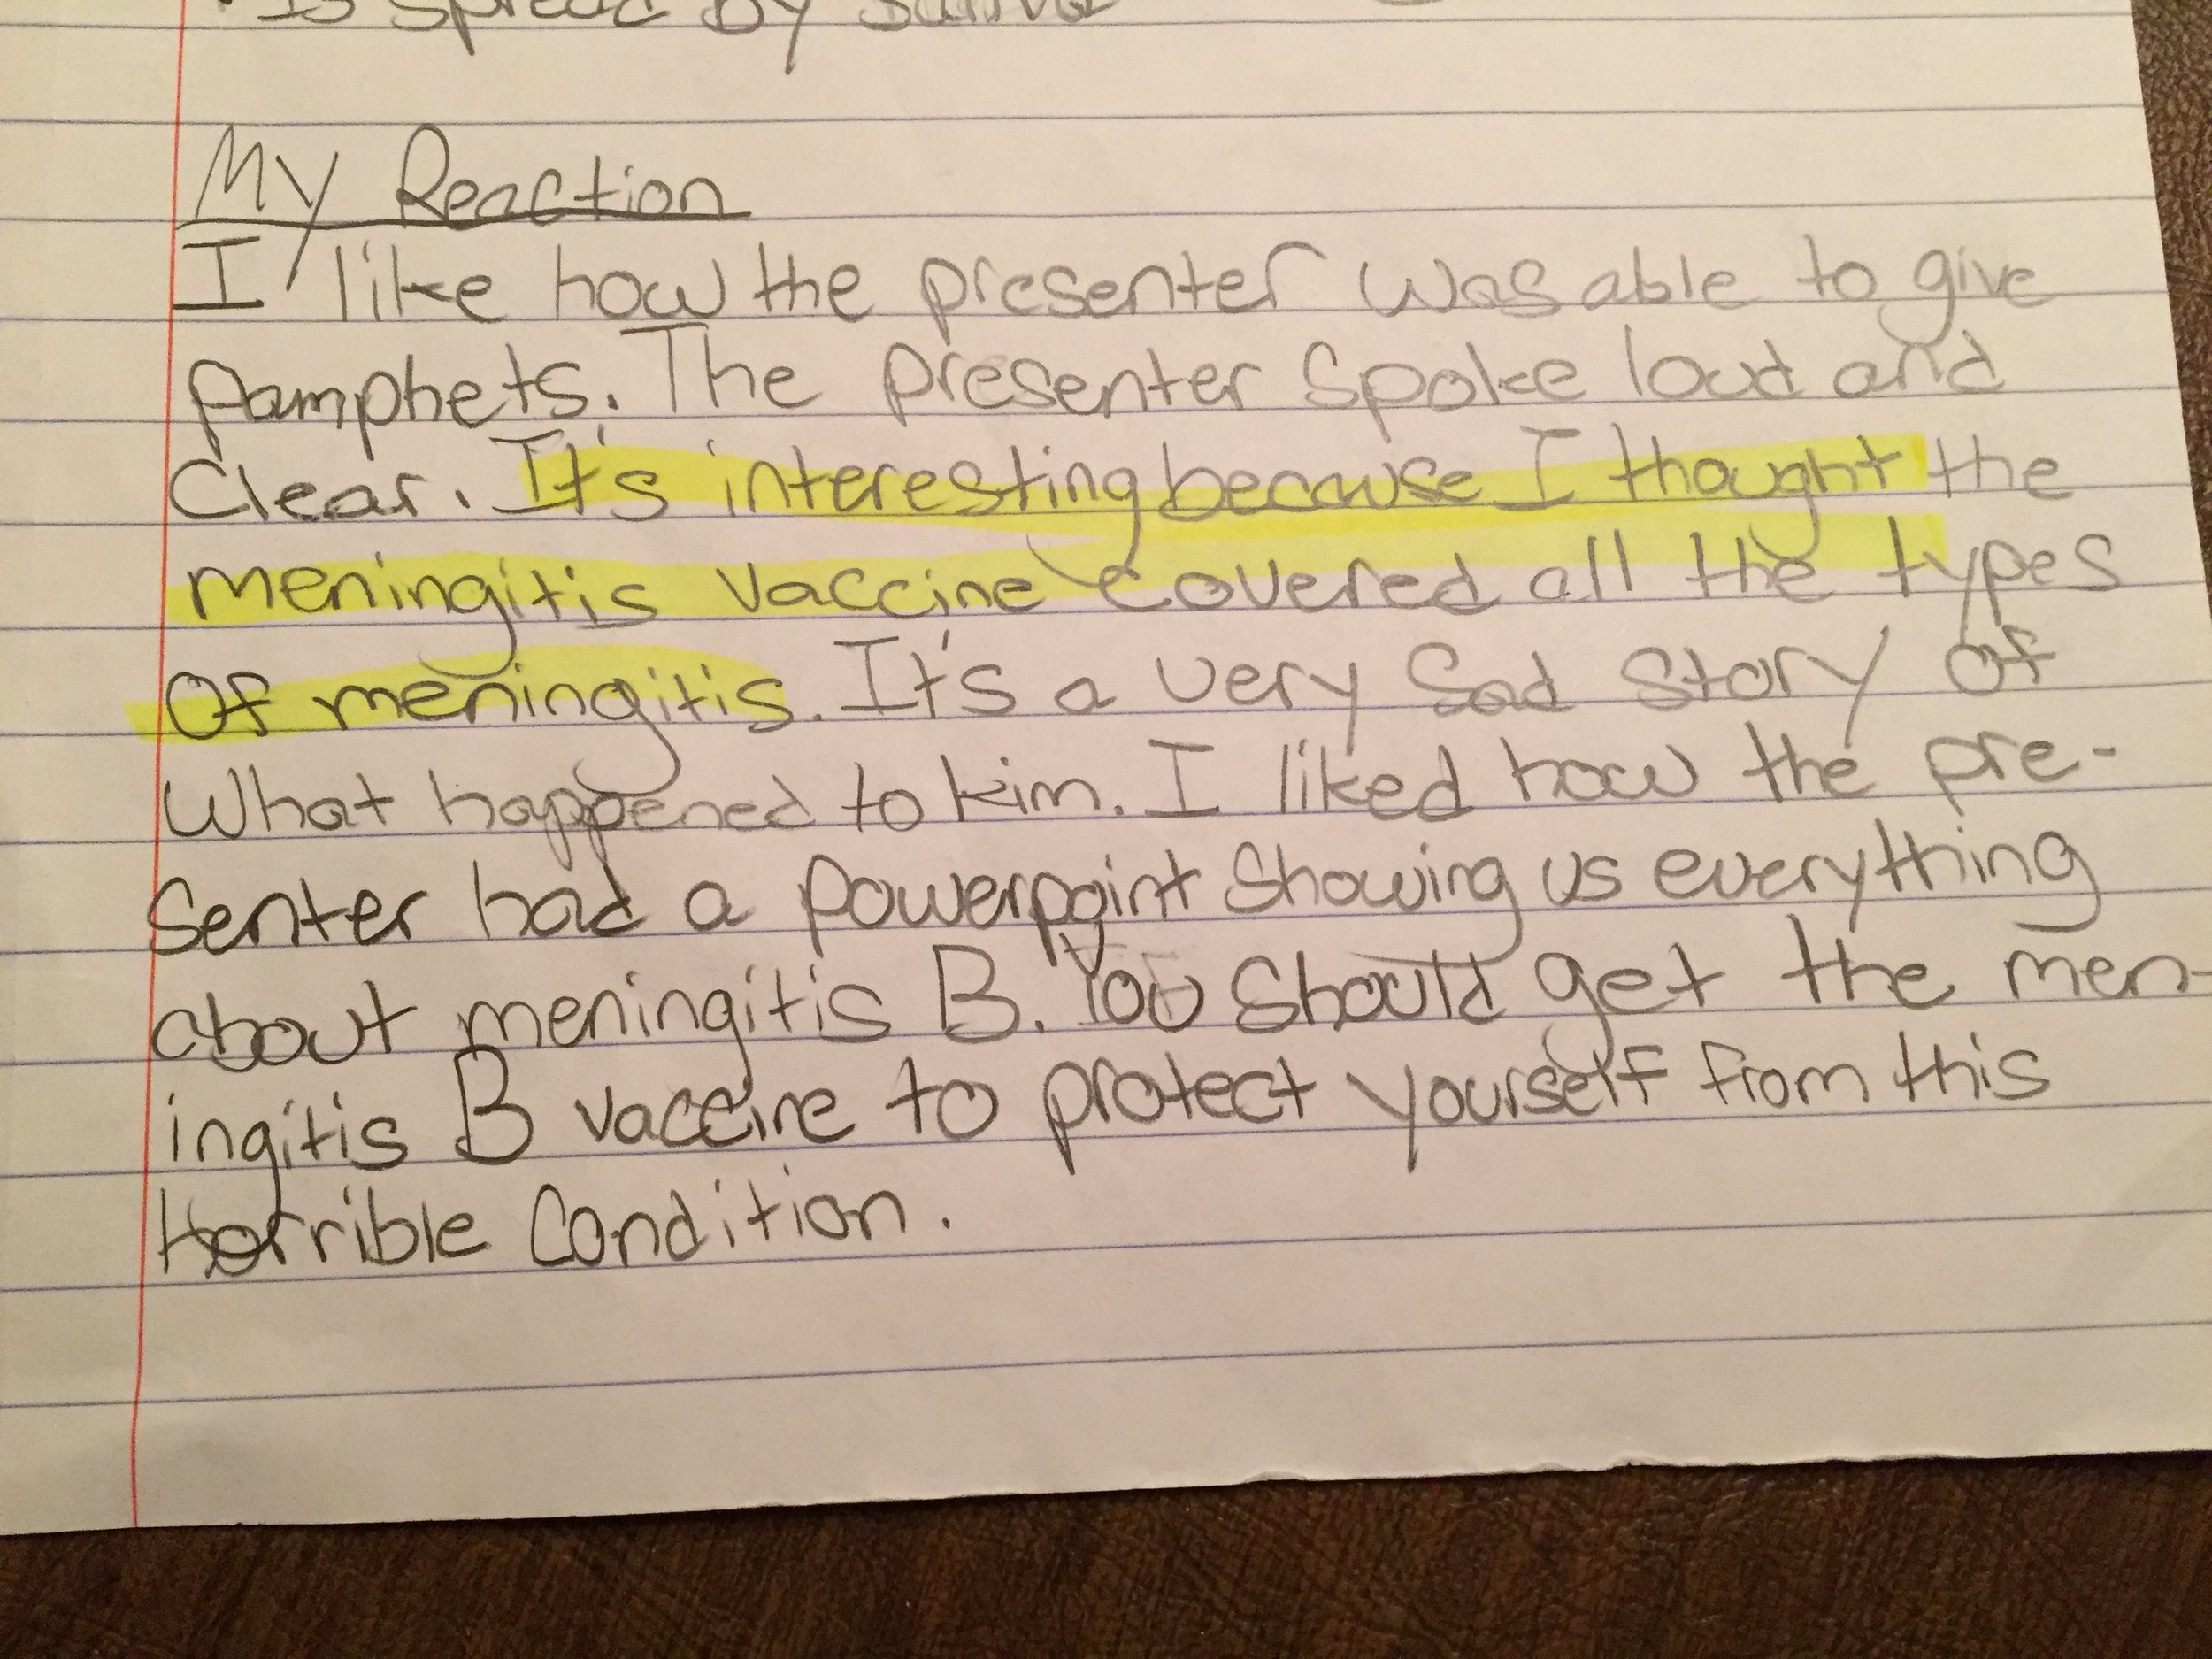 Is spread by
My Reaction
I like how the presenter was able to give
pamphets. The presenter spoke loud and
Clear. It's interesting because I thought the
meningitis vaccine covered all the types
Of meningitis. It's a very Sad Story of
What happened to kim. I liked how the pre-
senter had a powerpoint showing us everything
about meningitis B. You Should get the men-
ingitis B vaccine to protect yourself from this
Horrible Condition.